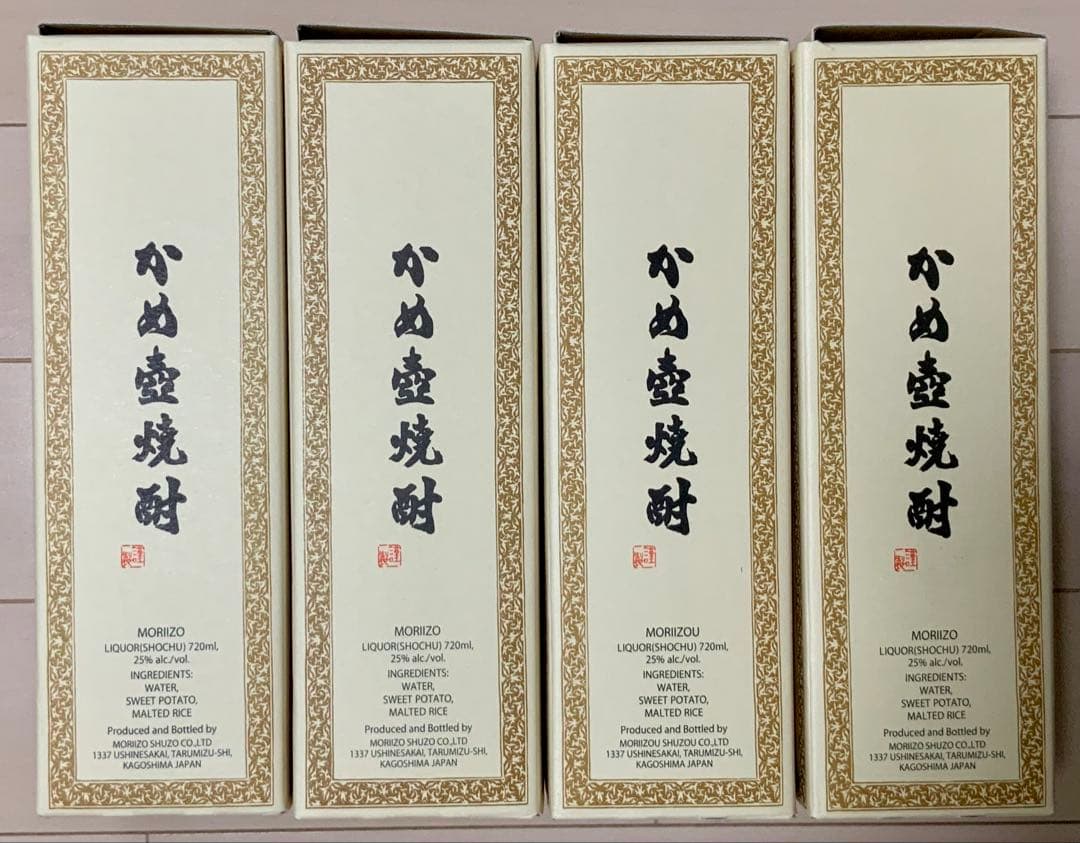 かめ壺焼酎
MORIIZO
LIQUOR(SHOCHU) 720ml,
25% alc./vol.
INGREDIENTS:
WATER,
SWEET POTATO,
MALTED RICE
Produced and Bottled by
MORIIZO SHUZO CO.,LTD
1337 USHINESAKAI, TARUMIZU-SHI,
KAGOSHIMA JAPAN
かめ壺焼酎
MORIIZO
LIQUOR(SHOCHU) 720ml,
25% alc./vol.
INGREDIENTS:
WATER,
SWEET POTATO,
MALTED RICE
Produced and Bottled by
MORIIZO SHUZO CO.,LTD
1337 USHINESAKAI, TARUMIZU-SHI,
KAGOSHIMA JAPAN
かめ壺焼酎
MORIIZOU
LIQUOR(SHOCHU) 720ml,
25% alc./vol.
INGREDIENTS:
WATER,
SWEET POTATO,
MALTED RICE
Produced and Bottled by
MORIIZOU SHUZOU CO.,LTD
1337 USHINESAKAI, TARUMIZU-SHI,
KAGOSHIMA JAPAN
かめ壺焼酎
MORIIZO
LIQUOR(SHOCHU) 720ml,
25% alc./vol.
INGREDIENTS:
WATER,
SWEET POTATO,
MALTED RICE
Produced and Bottled by
MORIIZO SHUZO CO.,LTD
1337 USHINESAKAI, TARUMIZU-SHI,
KAGOSHIMA JAPAN